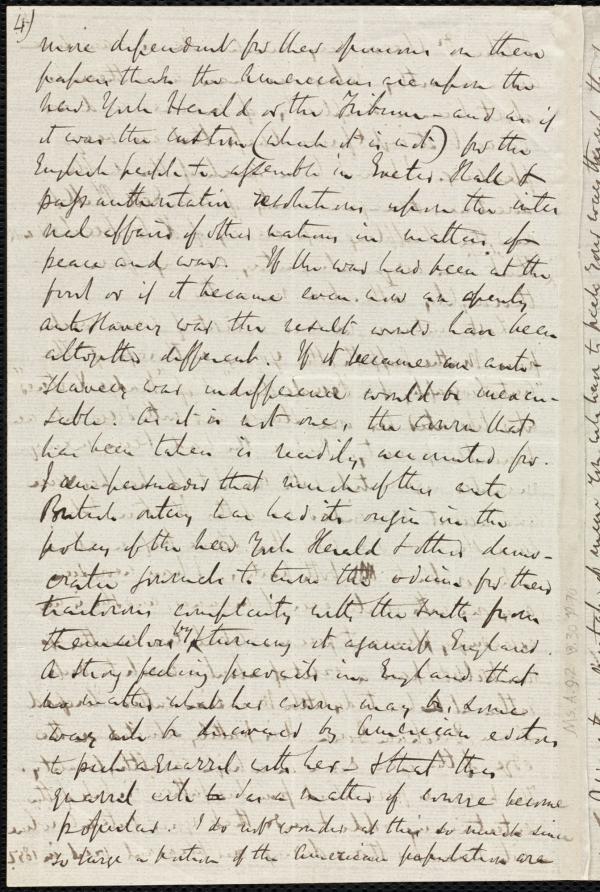 4)
more dependent for their opinions on their
papers than the Americans are upon the
New York Herald or the Tribune - and as if
it was the custom (which it is not) for the
English people to assemble in Exeter Hall &
pass authoritative resolutions upon the inter
nal affairs of other nations in matters of
peace and war. If the war had been at the
first or if it became even now an openly
anti Slavery war the result would have been
altogether different. If it became an anti-
Slavery war indifference would be inexcu-
sable. As it is not one, the course that
has been taken is readily accounted for.
I am persuaded that much of this anti
British outcry has had its origin in the
policy of the New York Herald & other demo-
cratic journals to turn the odium for their
traitorous complicity with the South from
themselves by turning it against England.
A strong feeling prevails in England that
no matter what her course may be some
way will be discovered by American editors
to pick a quarrel with her - & that this
quarrel will as a matter of course become
popular. I do not wonder at this so much since
so large a portion of the American population are
Ms.A.9.2 v.30 p.70